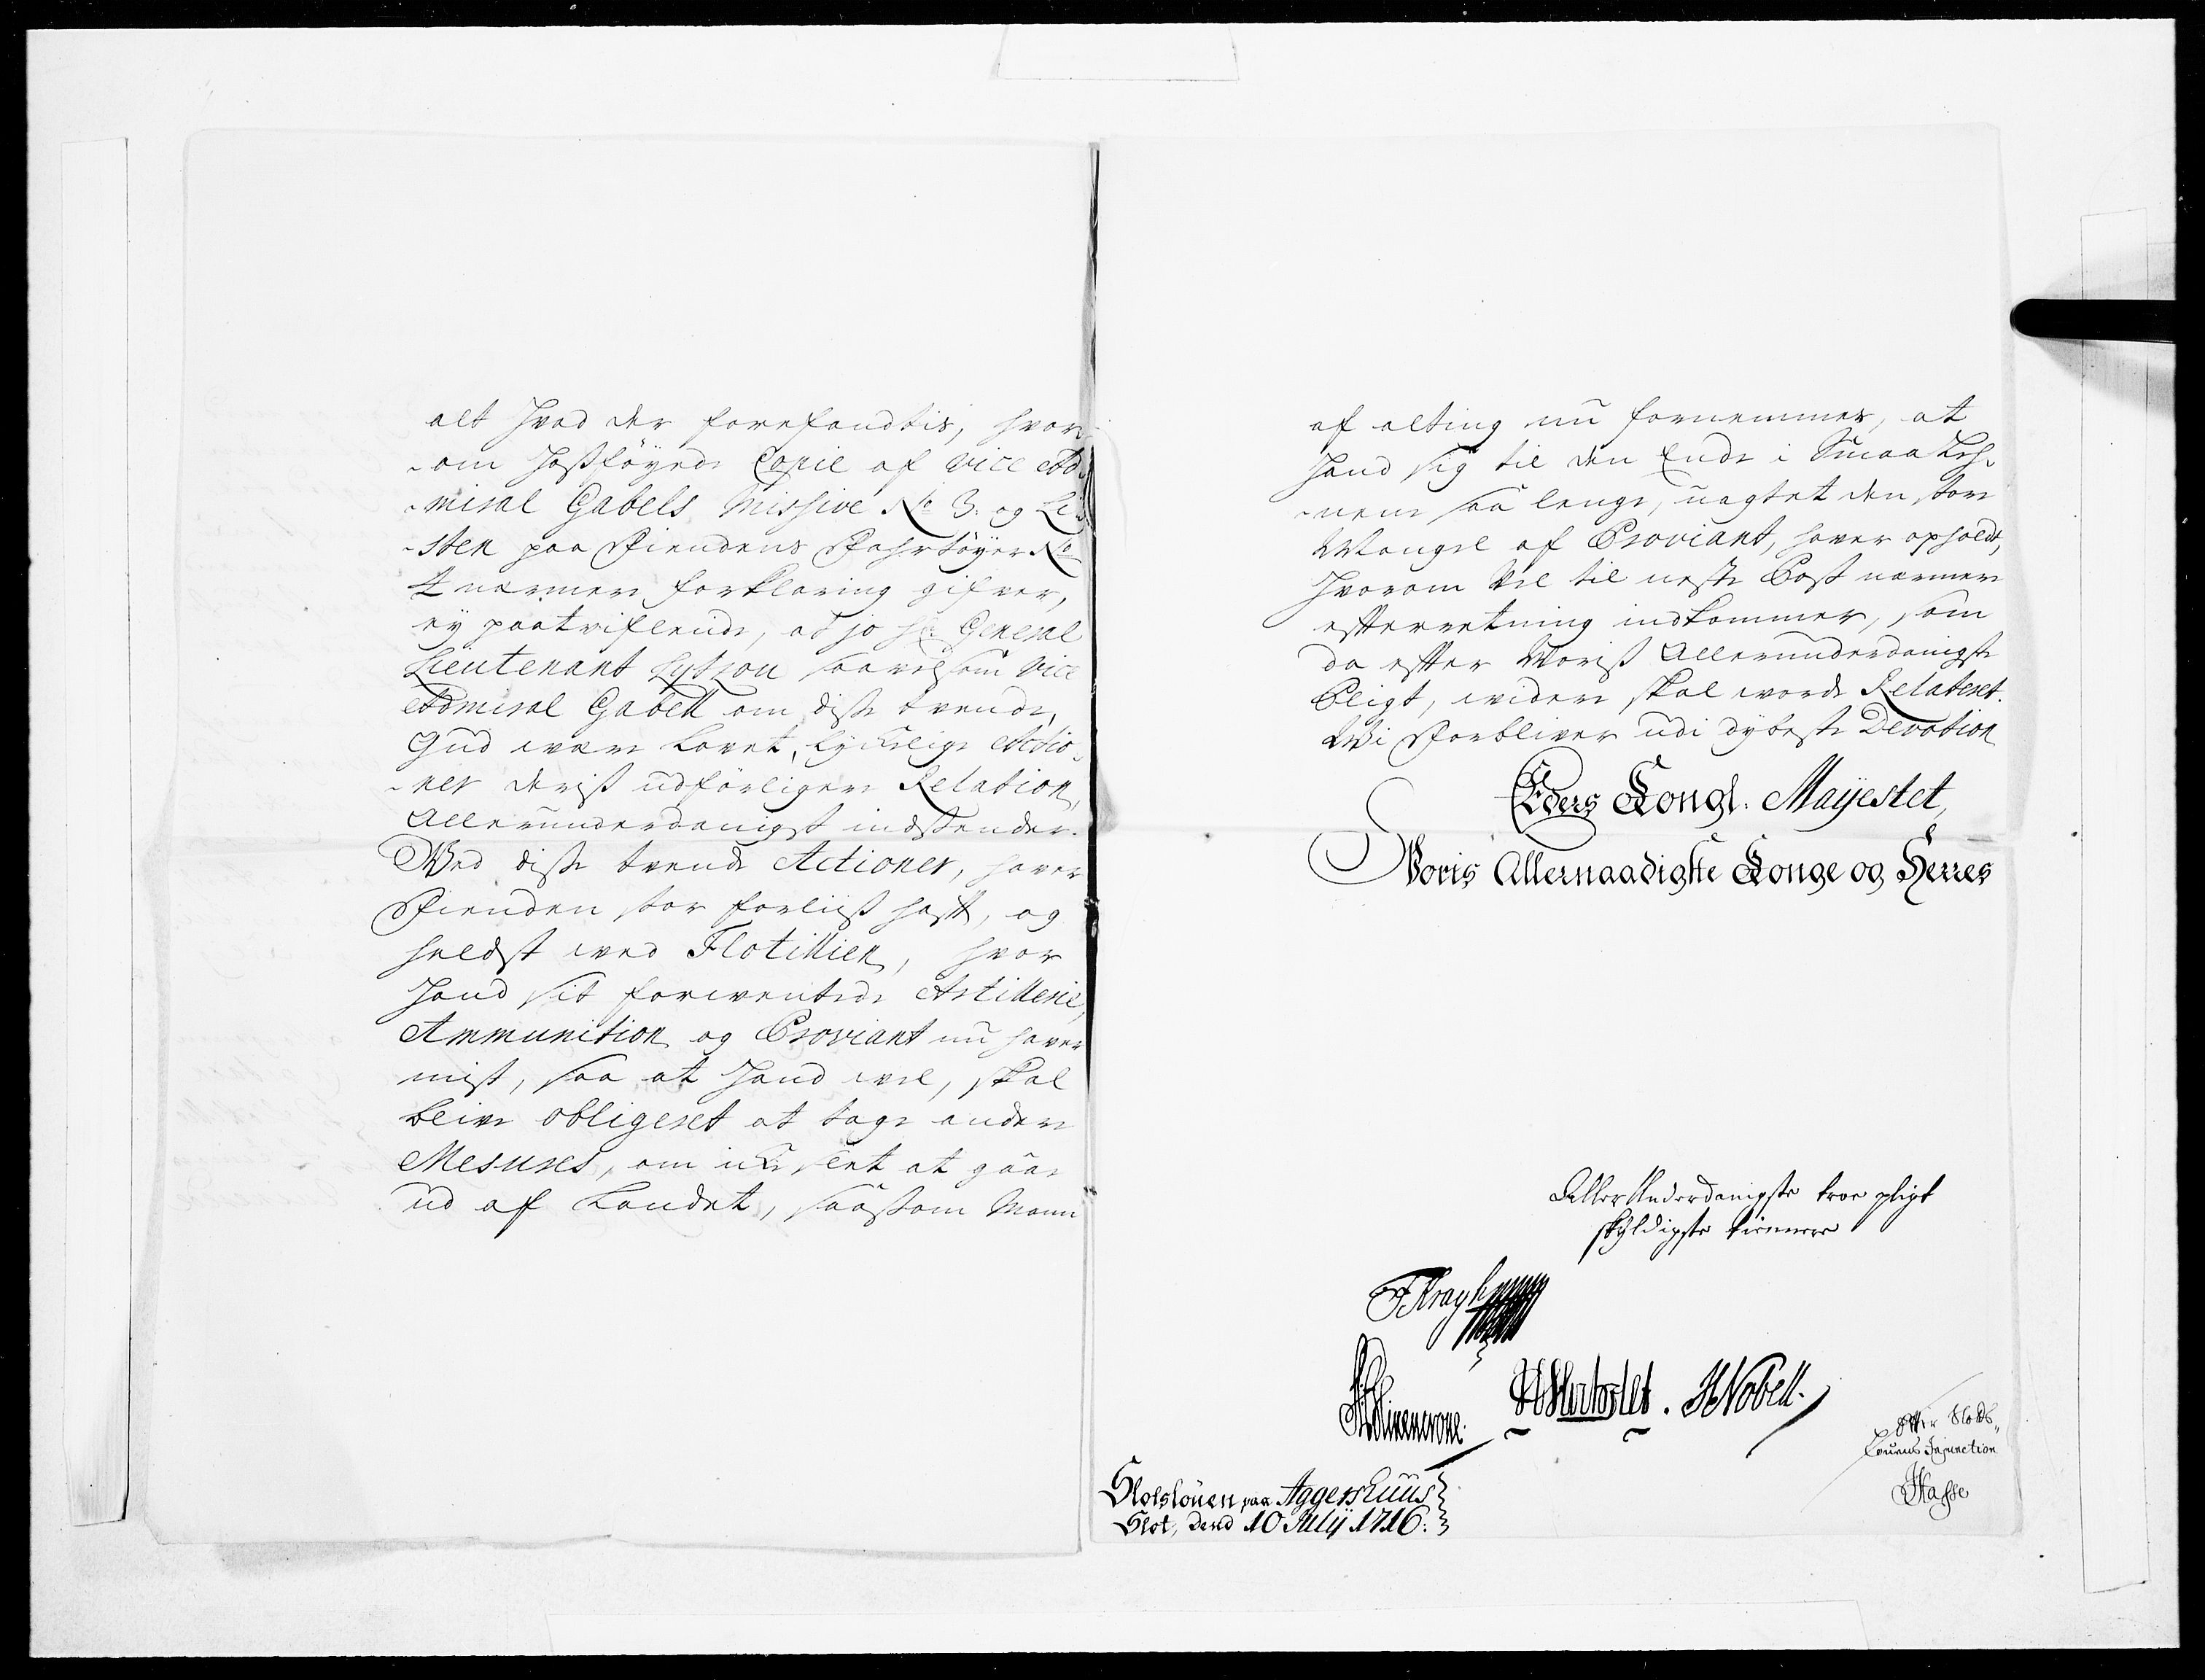 alt hvad der forefandtis, hvor
-om hosföyede Copie af Vice Ad-
-miral Gabels Missive No 3. og Li-
-sten paa Fiendens Fahrtöyer No
4 nærmere forklaring gifver,
ey paatviflende, at jo Hr General
Lieutenant Lytzou saavelsom Vice
Admiral Gabell om disse tvende,
Gud være Lovet, Lyckelige Actio-
-ner deriss udförligere Relation,
Allerunderdanigst indssender.
Ved disse tvende Actioner, haver
Fienden stor forliiss hafft, og
heldst ved Flotillien, hvor
Hand sit forventede Artillerie,
Ammunition og Proviant nu haver
mist, saa at Hand vel, skal
blive obligeret at tage andere
Mesures, om icke rent at gaae
ud af Landet, saassom Mann
af alting nu fornemmer, at
Hand sig til den Ende i Smaa Leh-
-nene saa lenge, uagtet den store
Mangel af Proviant, haver opholdt,
Hvorom Vel til neste Post nærmere
effterretning indkommer, som
da effter Voriss Allerunderdanigste
Pligt, videre skal vorde Relateret.
Vi Forbliver udi dybeste Devotion
Eders Kongl. Mayestet,
Voris Allernaadigste Konge og Herres
Aller Underdanigste troe pligt
skyldigste tiennere
F Kragh
H Hertzslef. I Nobell.
Effter Slods-
Louens Injunction
Hasse
Slotslouen paa Aggershuus
Slot, dend 10 July 1716: